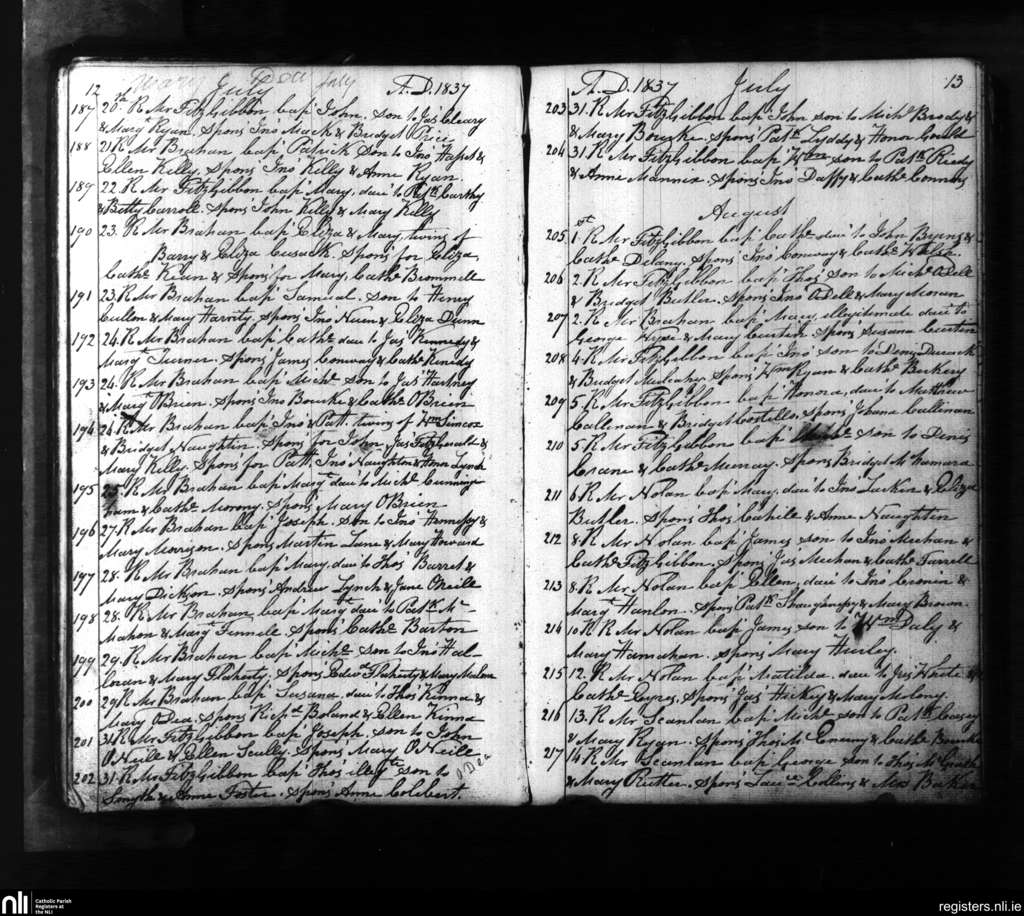 12 July A.D. 1837
187 20th R Mr FitzGibbon bap' John. son to Jas Cleary
& Margt Ryan. Spons Jno Mack & Bridget Price
188 21 R Mr Brahan bap' Patrick son to Jno &
Ellen Kelly. Spons Jno Kelly & Anne Ryan
189 22. R Mr FitzGibbon bap' Mary, daur to Patk Carthy
& Betty Carroll. Spons John Kelly & Mary Kelly
190 23. R Mr Brahan bap' Eliza & Mary, twins of
Barry & Eliza Cusack. Spons for Eliza
Cathe & Spons for Mary, Cathe
191 23. R Mr Brahan bap' Samuel. son to Henry
Cullen & Mary Harrity. Spons Jno & Eliza Dunn
192 24. R Mr Brahan bap' Cathe daur to Jas Kennedy &
Margt Turner. Spons James Conway & Cathe Kenedy
193 24. R Mr Brahan bap' Miche son to Jas Hartney
& Margt O'Brien. Spons Jno Bourke & Cathe O'Brien
194 R Mr Brahan bap' Jno & Patt. twins of Wm Simcox
& Bridget Naughtin. Spons for John Jas FitzGerald &
Mary Kelly. Spons for Patt, Jno Naughten & Honor Lynch
195 25. R Mr Brahan bap' Margt daur to Miche Cunning-
ham & Cathe Morony. Spons Mary O'Brien
196 27. R Mr Brahan bap' Joseph. son to Jno Hennessy &
Mary Morrison. Spons Martin Lane & Mary Howard
197 28. R Mr Brahan bap' Mary, daur to Thos Barret &
Mary Dickson. Spons Andrew Lynch & Jane O'Neille
198 28. R Mr Brahan bap' Margt daur to Patk Mc
Mahon & Margt Fennell. Spons Cathe Barton
199 29. R Mr Brahan bap' Miche son to Jno Hal-
loran & Mary Flaherty. Spons Edwd Flaherty & Mary
200 29. R Mr Brahan bap' Susana. daur to Thos Kinna &
Mary O'Dea. Spons Richd Boland & Ellen Kinna
201 31. R Mr FitzGibbon bap' Joseph. son to John
O'Neille & Ellen Scully. Spons Mary O'Neille
202 31. R Mr FitzGibbon bap' Thos illegte son to O'Dea
Smyth & Anne Foster. Spons Anne Colebert.
A.D. 1837 July 13
203 31. R Mr FitzGibbon bap' John son to Michl Brody &
& Mary Bourke. Spons Patk Lyddy & Honor Gould
204 31 R Mr FitzGibbon bap' Wm son to Patk Reedy
& Anne Mannix. Spons Jno Daffy & Cathe Connors
August
205 1st R Mr FitzGibbon bap' Cathe daur to John Byrns &
Cathe Delany. Spons Jno Conway & Cathe Walsh
206 2. R Mr FitzGibbon bap' Thos son to Miche O'Dell
& Bridget Butler. Spons Jno O'Dell & Mary Moran
207 2. R Mr Brahan bap' Mary, illegitimate daur to
George & Mary Curtin Spons Susana Curtin
208 4. R Mr FitzGibbon bap' Jno son to Deny
& Bridget Mulcahy. Spons Wm Ryan & Cathe Berkery
209 5. R Mr FitzGibbon bap' Honora, daur to Matthew
Callenan & Bridget Costello. Spons Johana Callinan
210 5 R Mr FitzGibbons bap' son to Denis
Crane & Cathe Murray. Spons Bridget McNamara
211 6 R Mr Nolan bap' Mary. daur to Jno Larkin & Eliza
Butler. Spons Thos Cahile & Anne Naughten
212 8. R Mr Nolan bap' James son to Jno Meehan &
Cathe FitzGibbon. Spons Jas Meehan & Cathe Farrell
213 8. R Mr Nolan bap' Ellen, daur to Jno Cronin &
Mary Hanlon. Spons Patk Shaughnessy & Mary Brown.
214 10. R R Mr Nolan bap' James son to Wm Daly &
Mary Hannahan. Spons Mary Hurley.
215 12. R Mr Nolan bap' Matilda. daur to Jas White &
Cathe Spons Jas Hickey & Mary Molony.
216 13. R Mr Scanlan bap' Miche son to Patk Casey
& Mary Ryan. Spons Thos McEnerny & Cathe Bourke
217 14 R Mr Scanlan bap' George son to Thos McGrath
& Mary Rutter. Spons Laurce Collins & Mrs Baker
nli Catholic Parish
Registers at
the NLI
registers.nli.ie